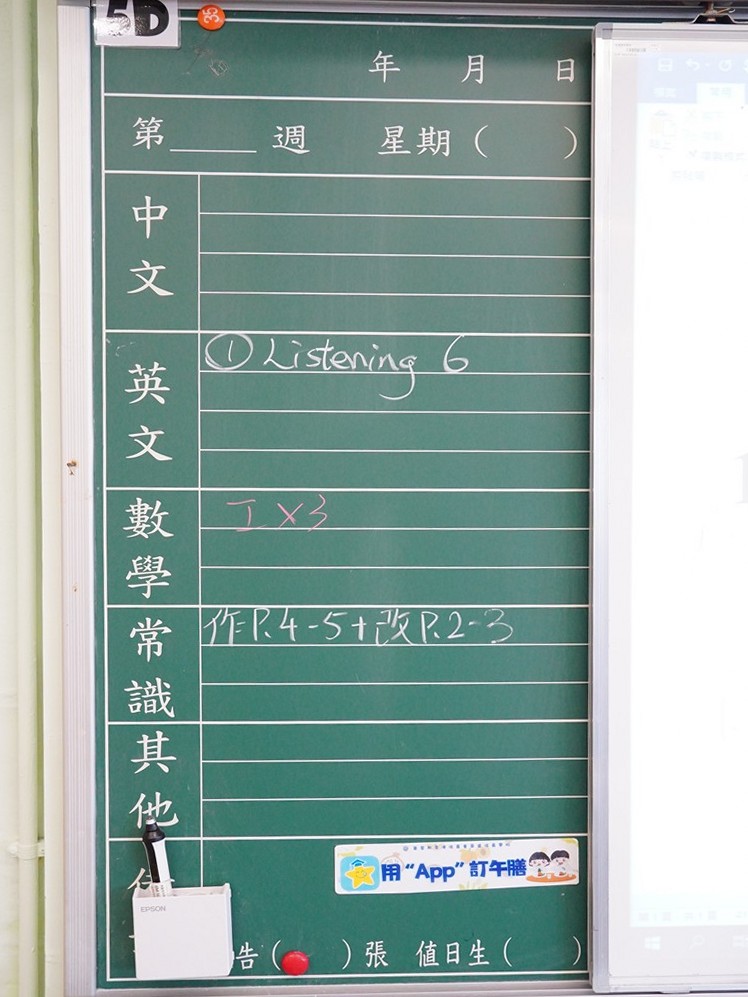 5D
年 月 日
第____週 星期( )
中文
英文
① Listening 6
數學
工×3
常識
作P.4-5+改P.2-3
其他
用“App”訂午膳
EPSON
告( )張 值日生( )